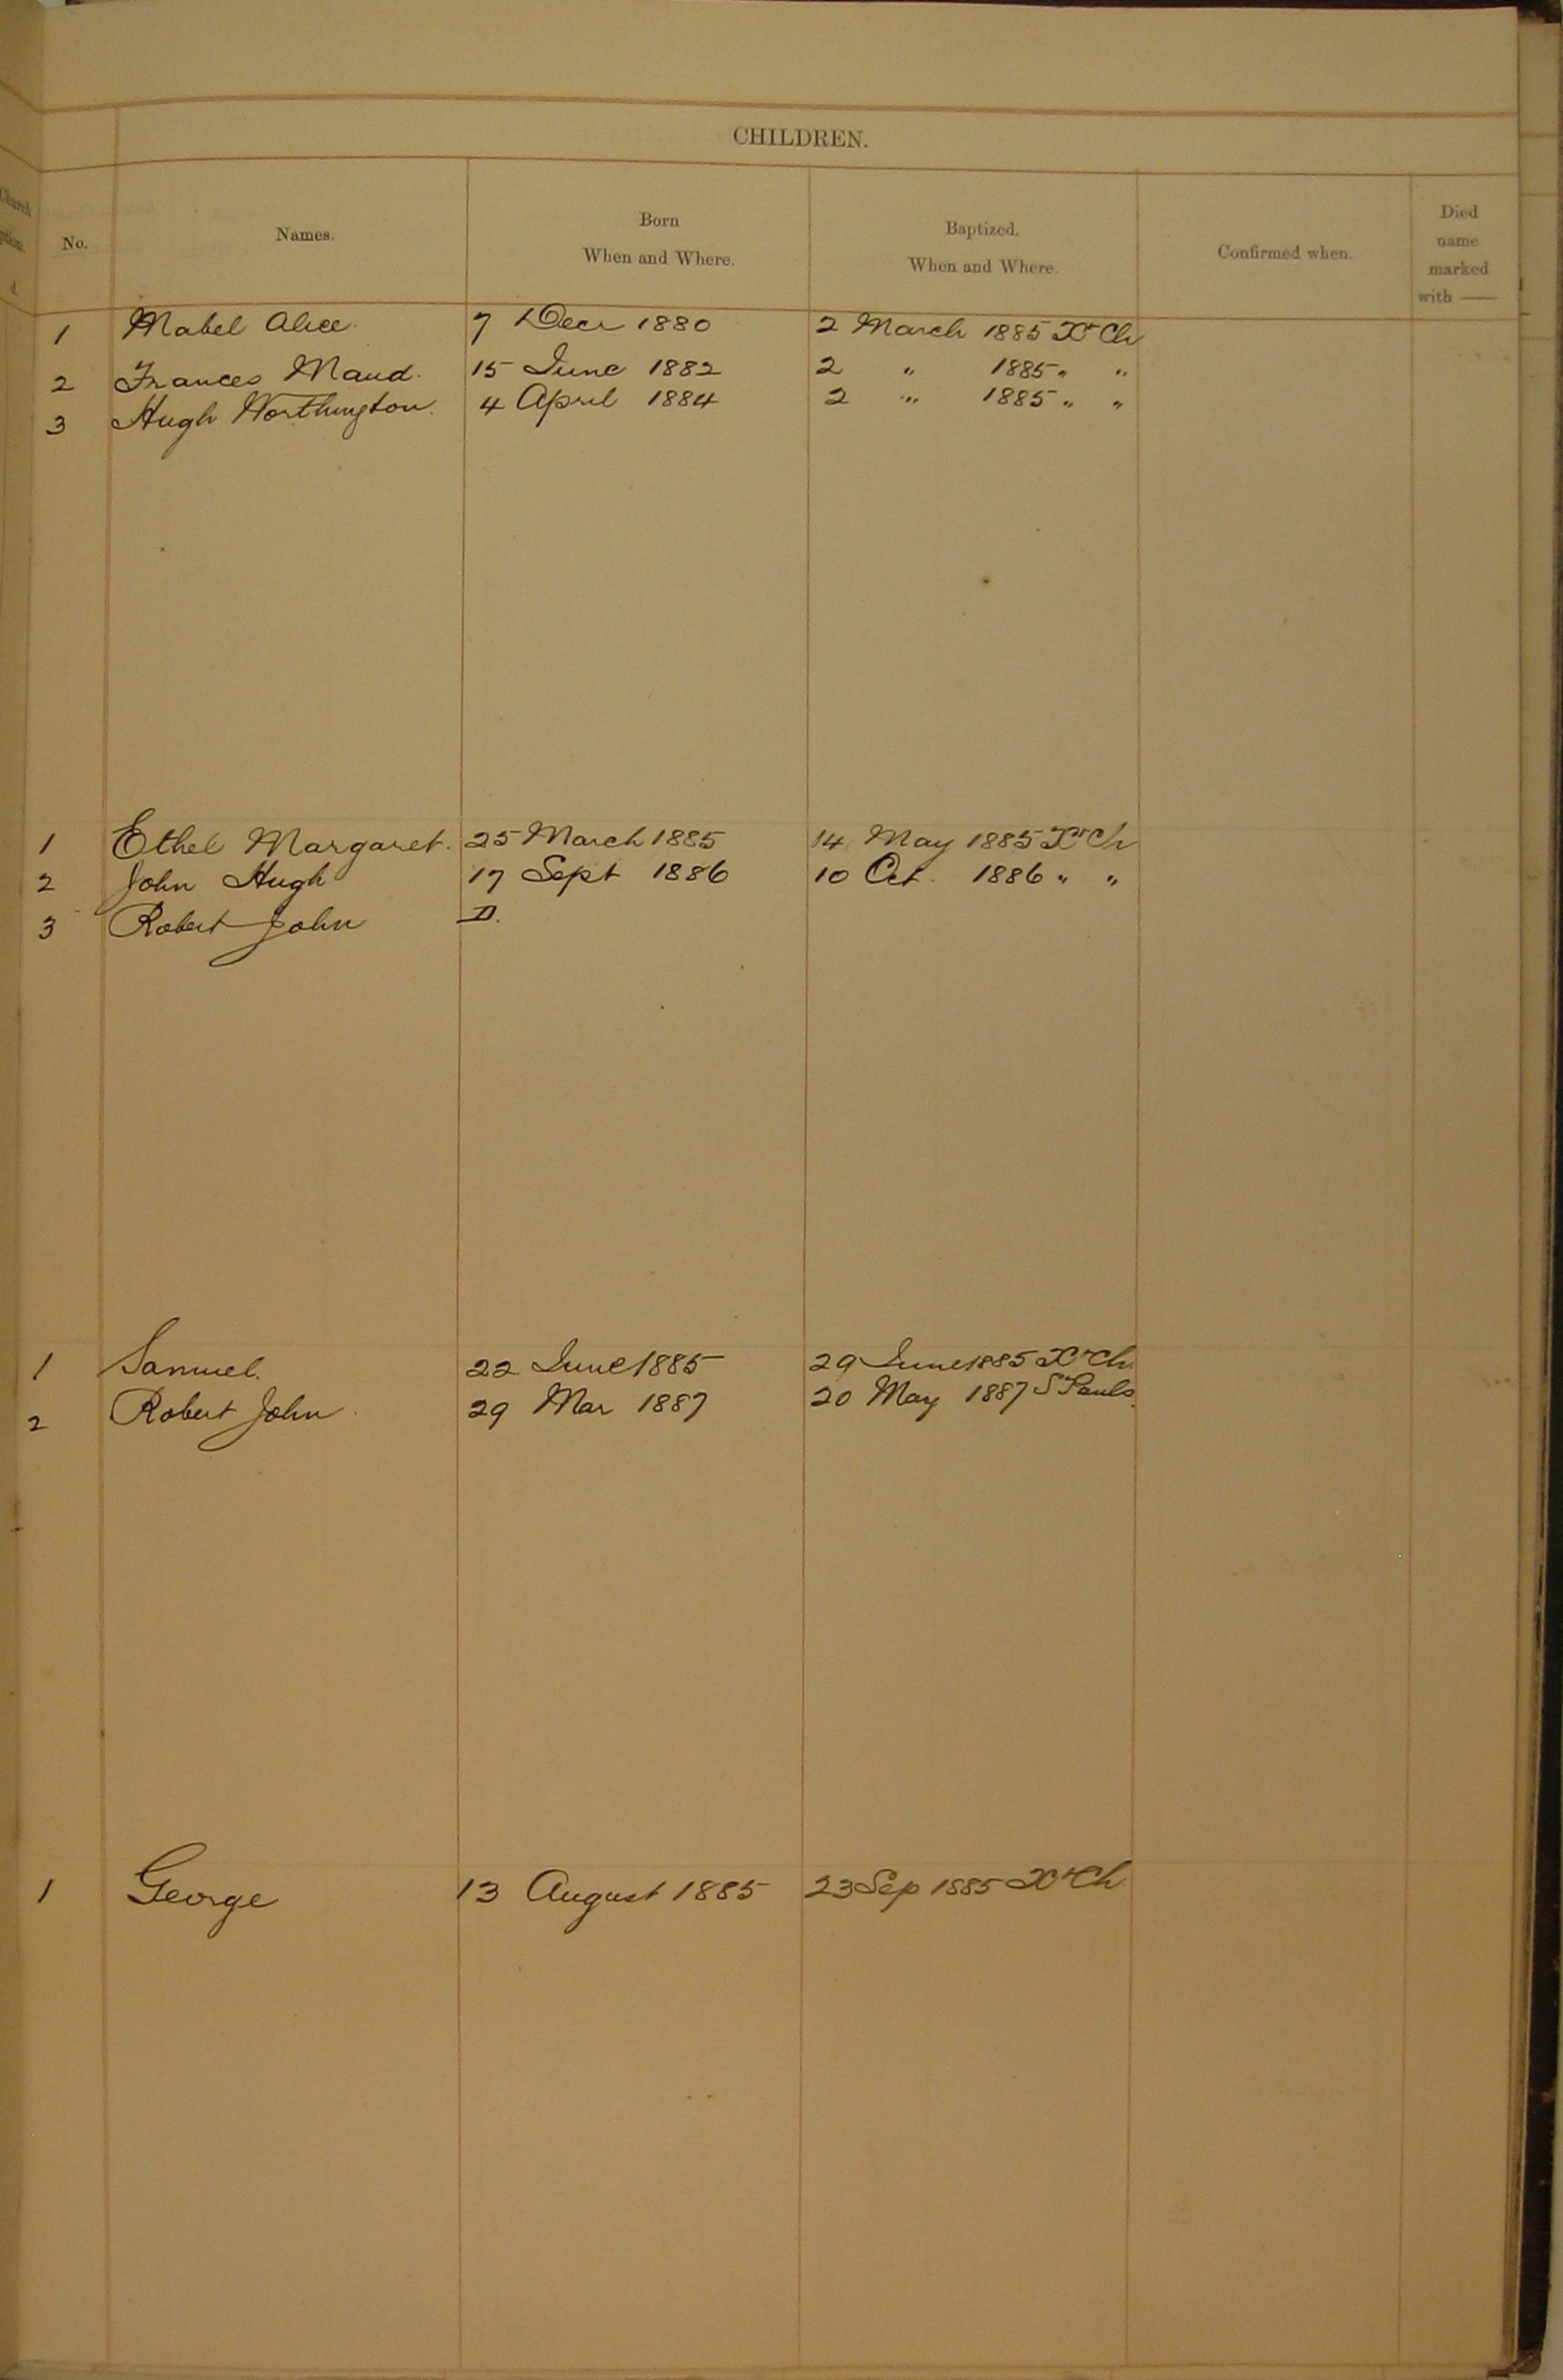 CHILDREN.
No. Names. Born When and Where. Baptized. When and Where. Confirmed when. Died name marked with —
1 Mabel Alice. 7 Decr 1880 2 March 1885 Xt Ch
2 Frances Maud. 15 June 1882 2 " 1885 " "
3 Hugh Worthington. 4 April 1884 2 " 1885 " "
1 Ethel Margaret. 25 March 1885 14 May 1885 Xt Ch
2 John Hugh 17 Sept 1886 10 Oct. 1886 " "
3 Robert John
1 Samuel. 22 June 1885 29 June 1885 Xt Ch.
2 Robert John. 29 Mar 1887 20 May 1887 St Pauls.
1 George 13 August 1885 23 Sep 1885 Xt Ch